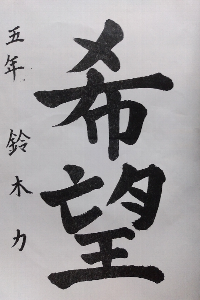 希望
五年 鈴木力